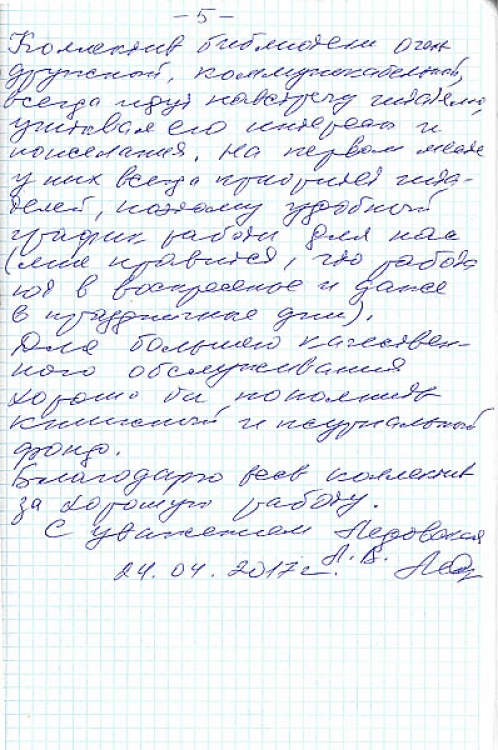 - 5 -
Коллектив библиотеки очень
дружный, коммуникабельный,
всегда идут навстречу читателю,
учитывая его интересы и
пожелания. На первом месте
у них всегда приоритет чита-
телей, поэтому удобный
график работы для нас
(мне нравится, что работа
ют в воскресенье и даже
в праздничные дни).
Для большего качествен-
ного обслуживания
хорошо бы пополнять
книжный и журнальный
фонд.
Благодарю весь коллектив
за хорошую работу.
С уважением Ледовская
Л. В.
24.04.2017г.